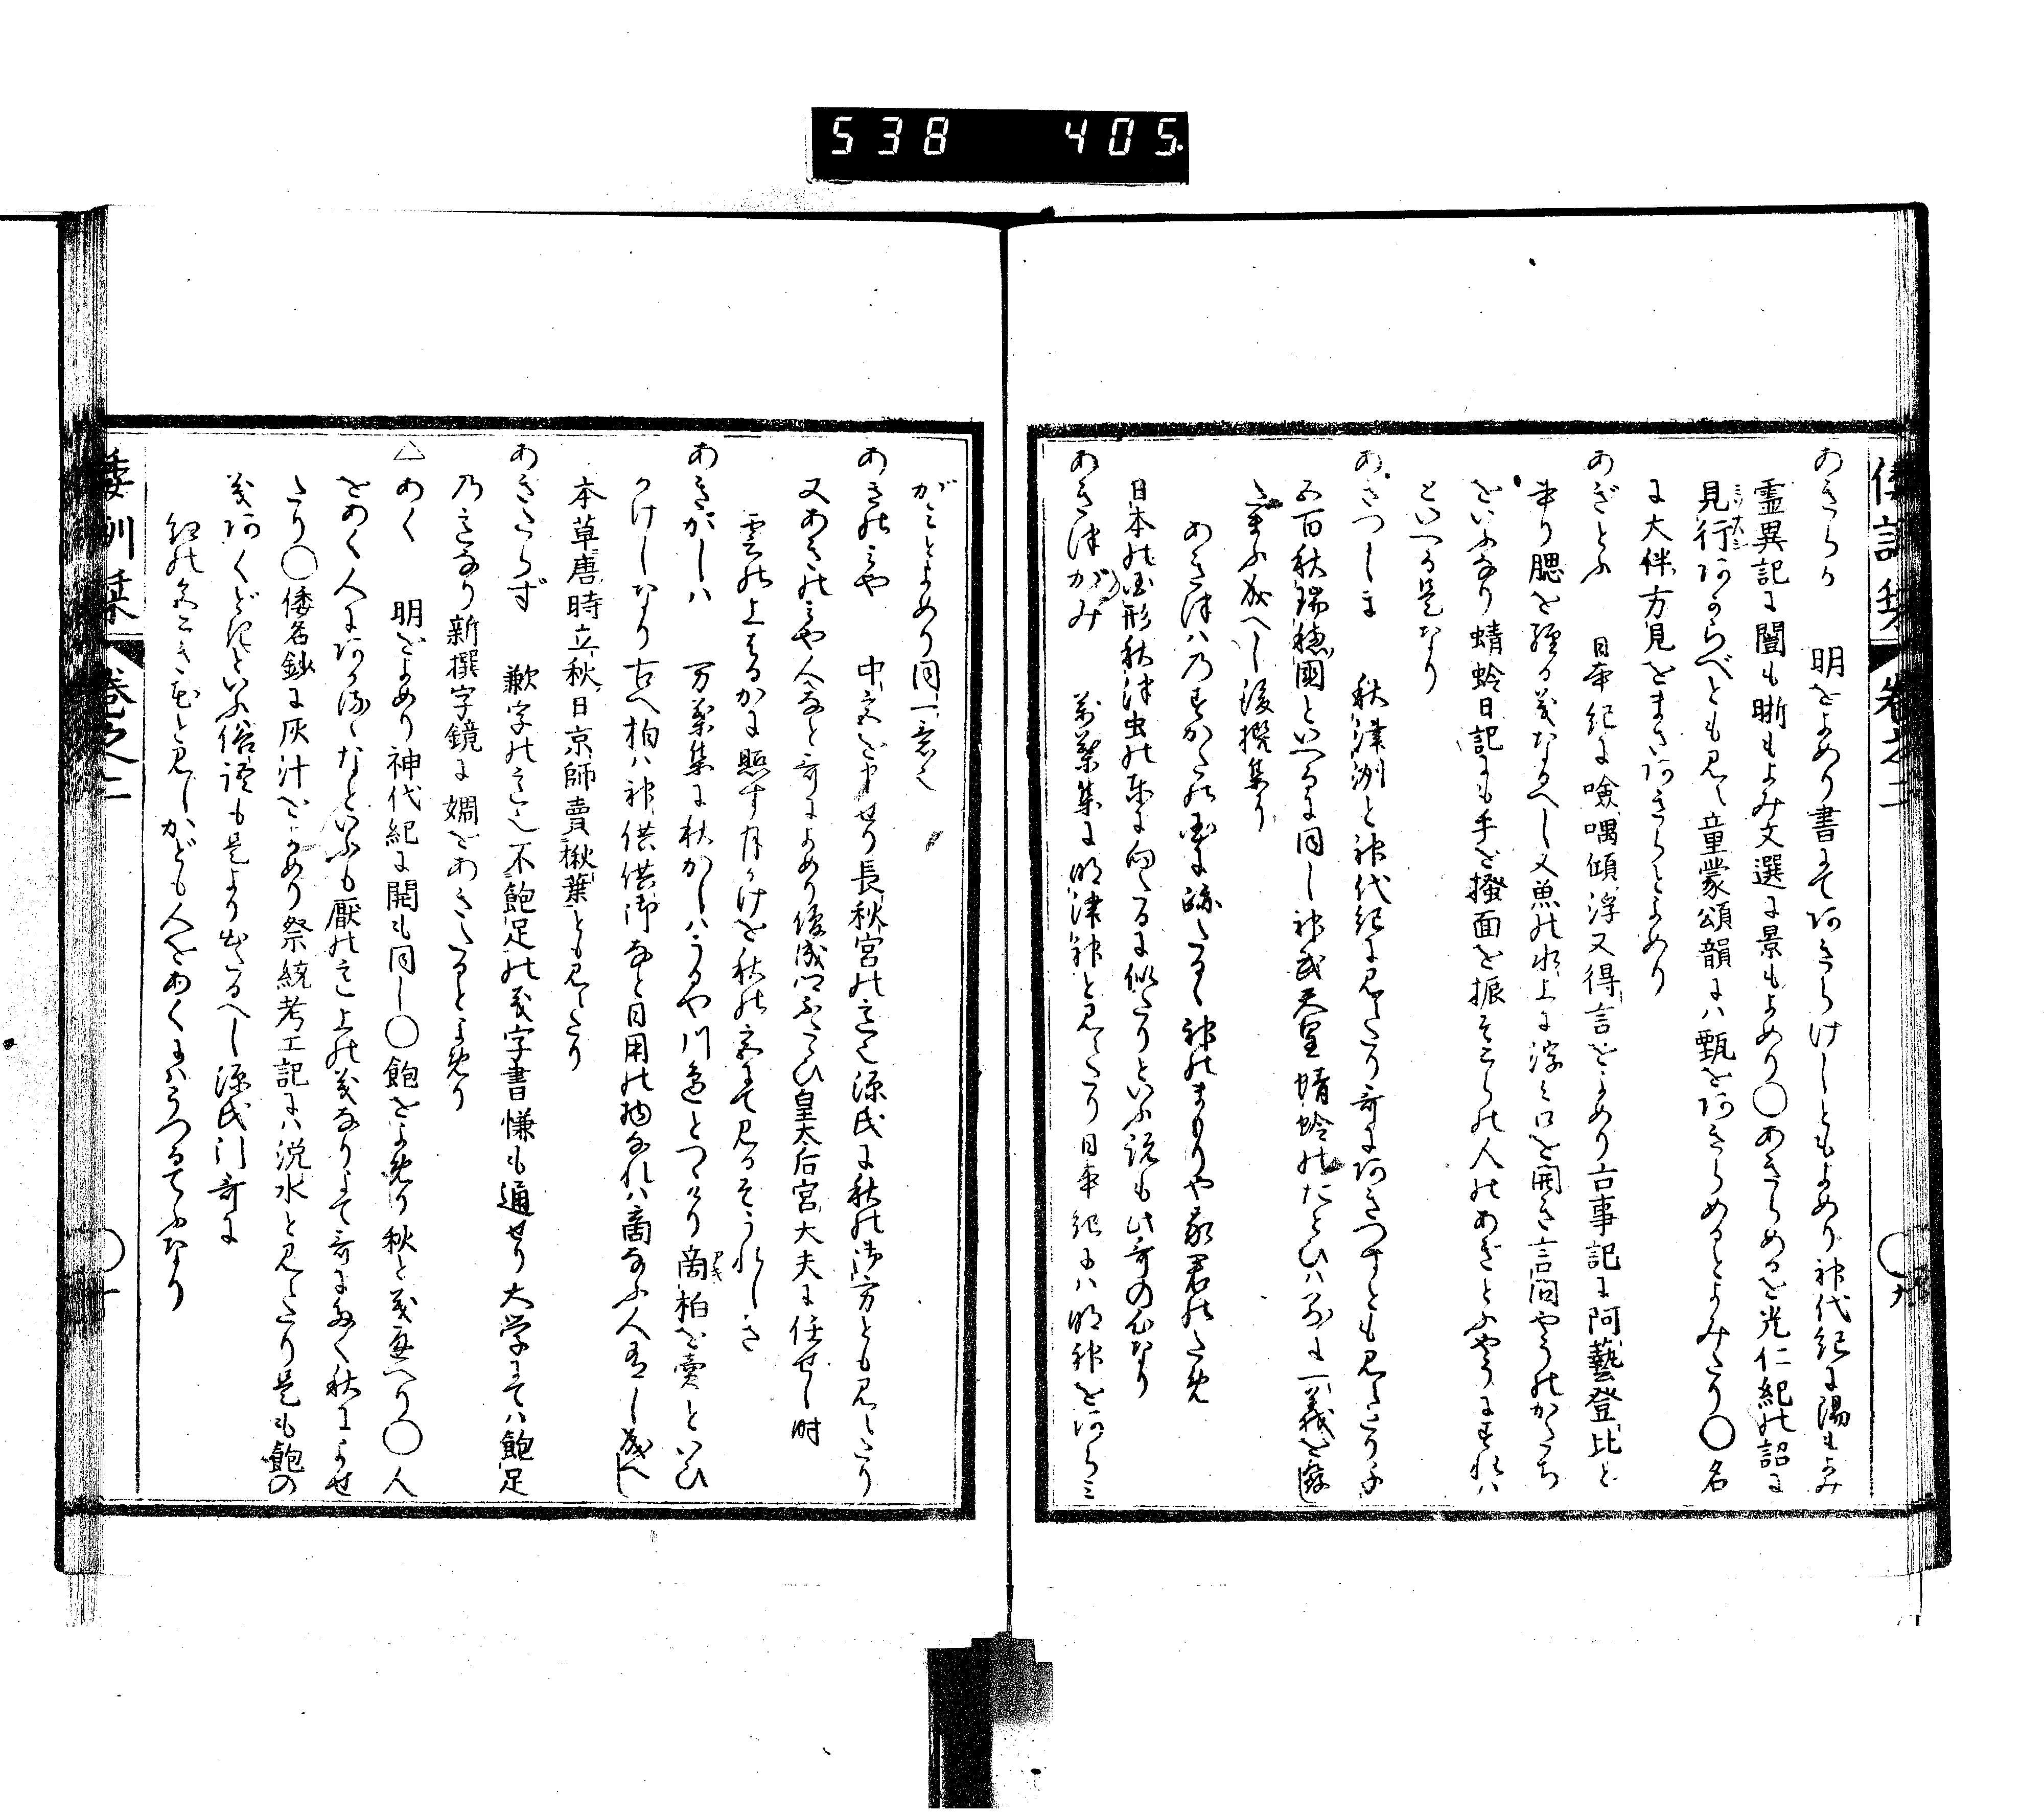 538 405
倭訓栞 卷之二 ○九
あきらか 明をよめり書にてあきらけしともよめり神代紀に陽もよみ
霊異記に闇も晰もよみ文選に景もよめり○あきらめるを光仁紀の詔に
見行あきらべとも見ゆ童蒙頌韻には甄をあきらめるとよみたり○名
に大伴方見をまさあきらとよめり
あぎとふ 日本紀に噞喁傾浮又得言をよめり古事記に阿藝登比と
あり腮を經る義なるへし又魚の水上に浮み口を開き言問やうのかたち
をいふなり蜻蛉日記にも手を搔面を振そこらの人のあぎとふやうにすれは
といへる是なり
あきつしま 秋津洲と神代紀に見えたり哥にあきつすとも見えたり
五百秋瑞穂國といへるに同し神武天皇蜻蛉のたとひは一義を
たまふ成へし後撰集に
あきつはのすかたの國に跡たるゝ神のまもりや我君のため
日本の國形秋津虫の東に向へるに似たりといふ説も此哥の心なり
あきつがみ 萬葉集に明津神と見えたり日本紀には明神をあらみ
がみとよめり同一意也
あきのみや 中宮を申せり長秋宮の意也源氏に秋の御方とも見えたり
又あきのみや人なと哥によめり俊成卿ふたゝひ皇太后宮大夫に任せし時
雲の上はるかに照す月かけを秋の宮にて見るそうれしき
あきがしは 万葉集に秋かしはうるや川邊とつゝけり商柏を賣といひ
かけしなり古へ柏は神供供御なと日用の物なれは商なふ人有し成へし
本草唐時立秋日京師賣楸葉とも見えたり
あきたらず 歉字の意也不飽足の義字書慊も通せり大学にては飽足
乃意なり新撰字鏡に嫺をあきたるとよめり
△あく 明をよめり神代紀に開も同し○飽をよめり秋と義通へり○人
をあく人にあかるゝなといふも厭の意上の義なりよて哥に多く秋によせ
たり○倭名鈔に灰汁をよめり祭統考工記には涗水と見えたり是も飽の
義あくどきといふ俗語も是より出たるへし源氏門哥に
紅の色こき花と見しかども人をあくにはうつるてふなり
倭訓栞 卷之二 ○十